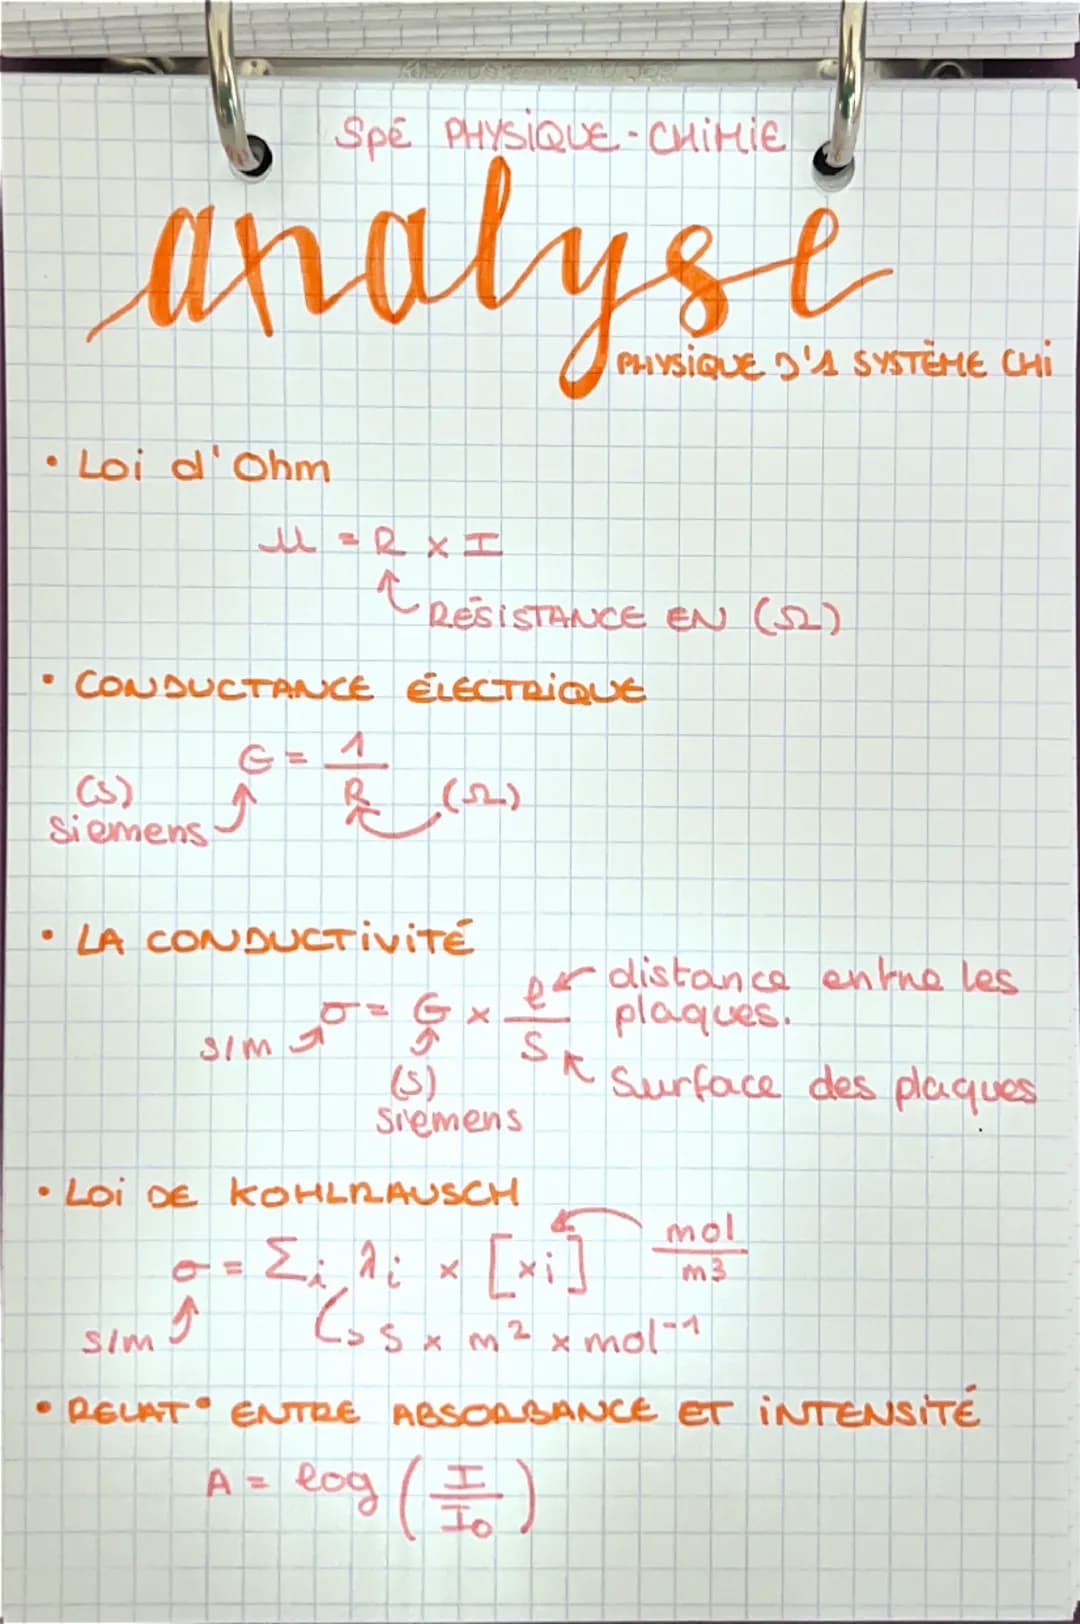 Spé PHYSIQUE - CHIMIE
analyse
PHYSIQUE D'1 SYSTÈME CHI
• Loi d'Ohm
U = R × I
RÉSISTANCE EN (Ω)
• CONDUCTANCE ÉLECTRIQUE
G = 1/R
(S) (Ω)
siemens
• LA CONDUCTIVITÉ
σ = G × l/S
distance entre les
plaques.
S/m
Surface des plaques
(S)
siemens
• LOI DE KOHLRAUSCH
σ = Σi λi × [xi] mol/m3
S/m S × m² × mol⁻¹
• RELAT° ENTRE ABSORBANCE ET INTENSITÉ
A = log (I/I₀)